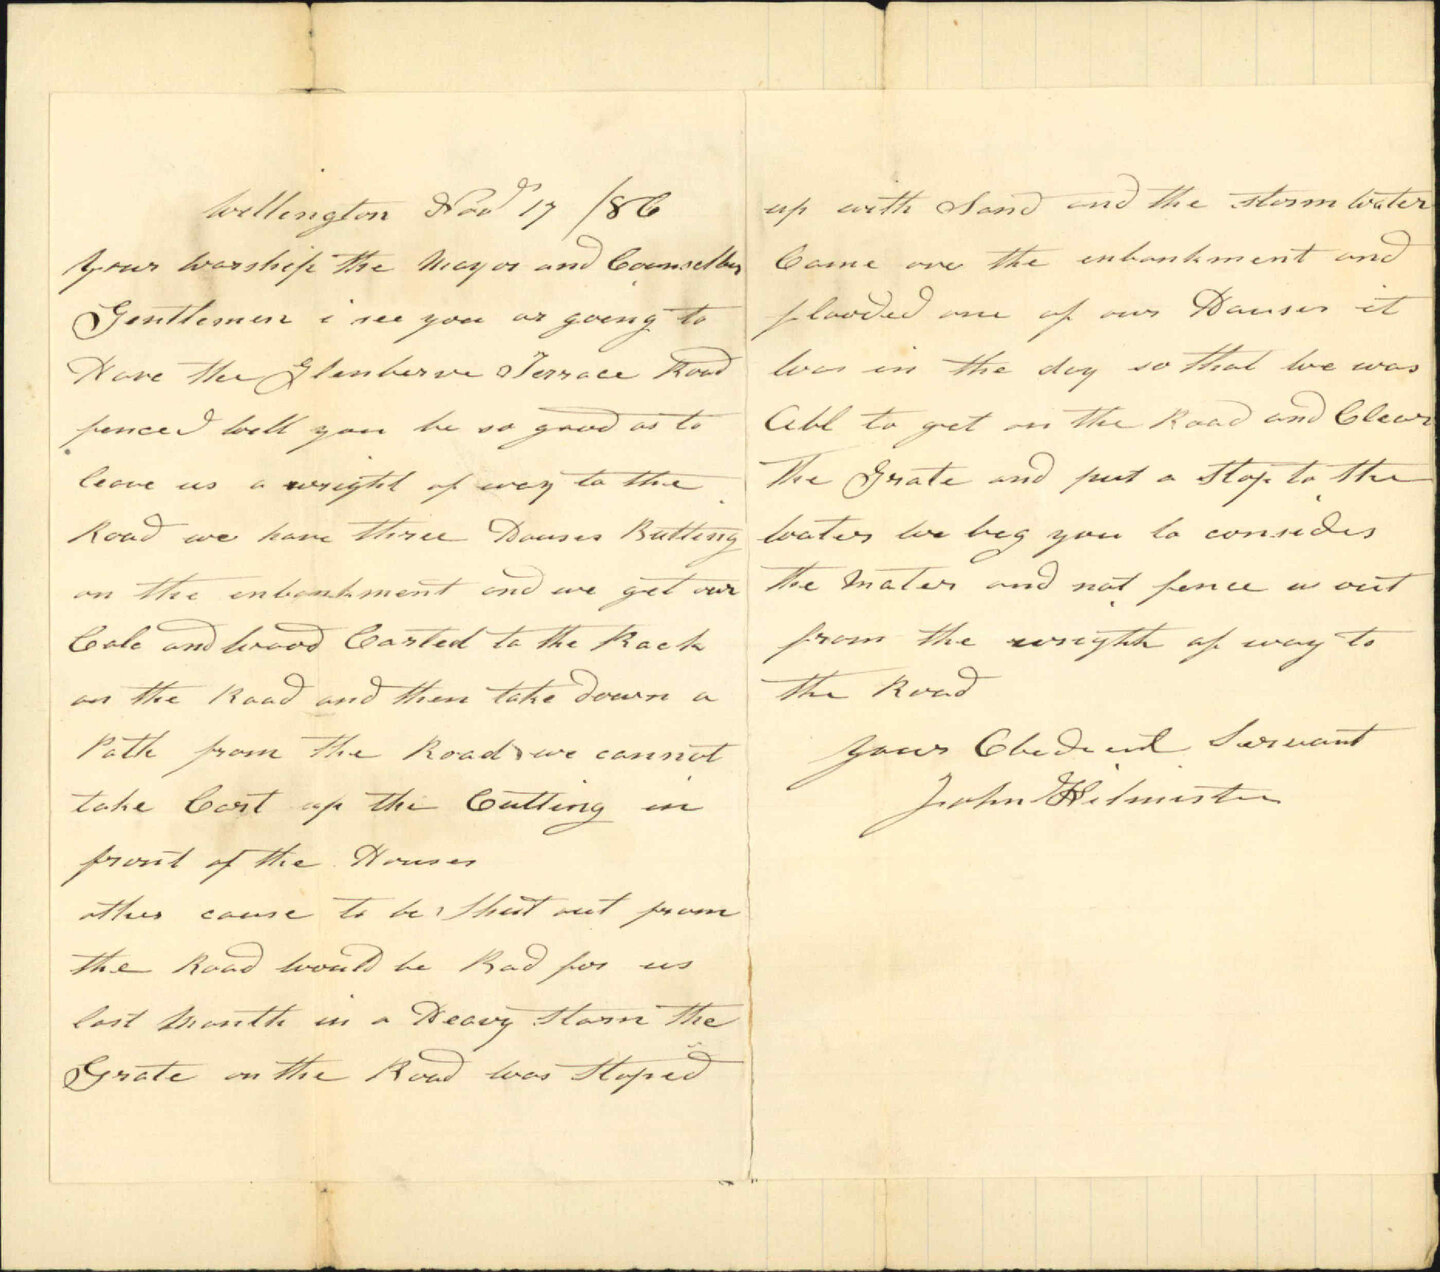 Wellington Novr 17 /86
Your Worship the Mayor and Counsellers
Gentlemen i see you ar going to
Have the Glenberve Terrace Road
fenced Will you be so good as to
leave us a wright of way to the
Road we have three Houses Butting
on the enbankment and we get our
Cole and Wood Carted to the Rack
on the Road and then take down a
Path from the Road we cannot
take Cart up the Cutting in
front of the Houses
other cause to be Shut out from
the Road would be Bad for us
last Month in a Heavy Storm the
Grate on the Road was Stoped
up with Sand and the Storm Water
Came over the enbankment and
flooded one of our Houses it
Was in the day so that We was
Abl to get on the Road and Clear
the Grate and put a Stop to the
Water We beg you to consider
the Mater and not fence us out
from the wright of way to
the Road
Your Obedient Servant
John Hilmister